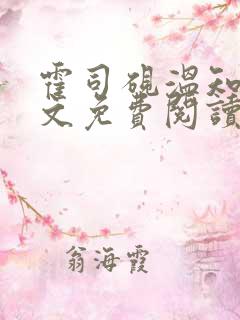 霍司硯溫知
文免費閱讀
翁海霞